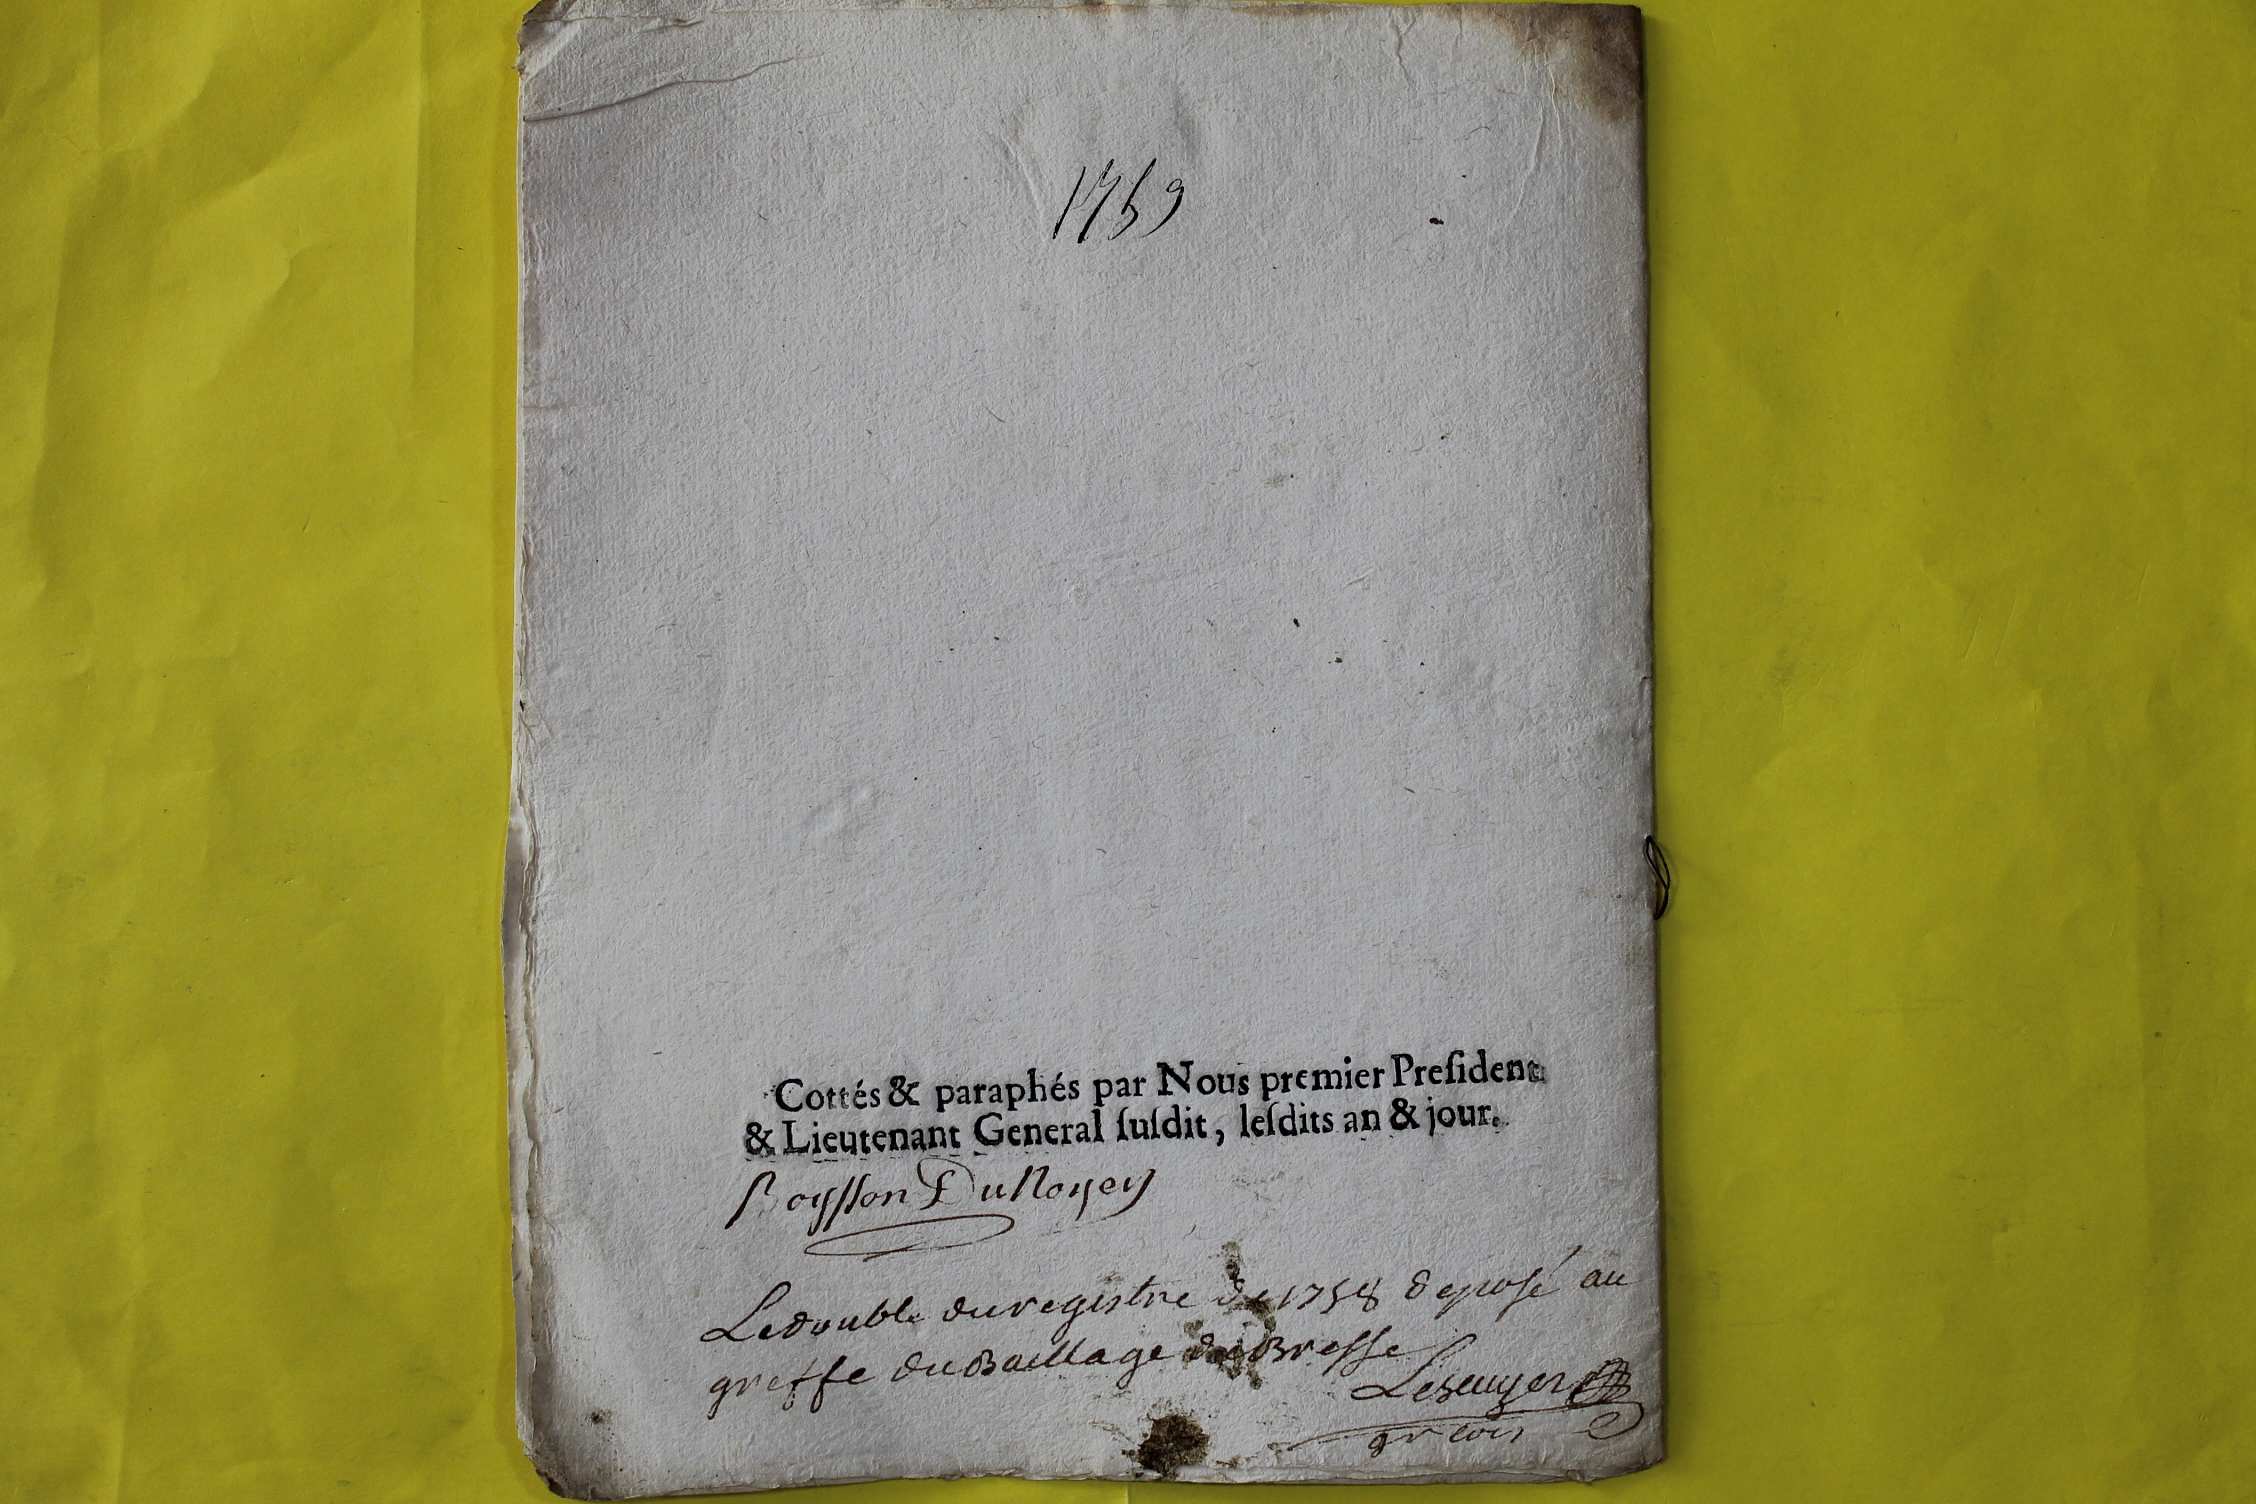 1759
Cottés & paraphés par Nous premier Preſident
& Lieutenant General ſuſdit, leſdits an & jour.
Boysson Du Noyer
Le double du registre de 1758 deposé au
greffe du Baillage de Bresse